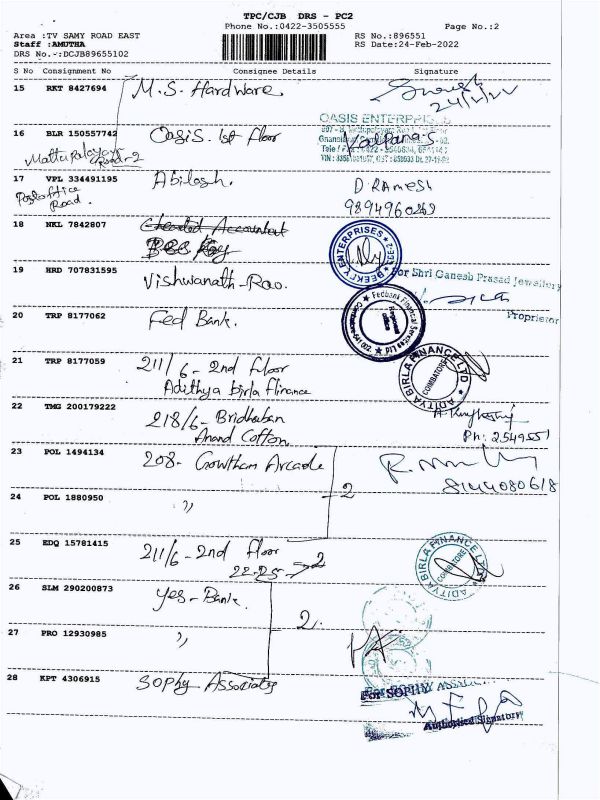 TPC/CJB DRS - PC2
Phone No.:0422-3505555 Page No.:2
Area :TV SAMY ROAD EAST RS No.:896551
Staff :AMUTHA RS Date:24-Feb-2022
DRS No.-:DCJB89655102
S No Consignment No Consignee Details Signature
15 RKT 8427694 M.S. Hardware
24/2/22
OASIS ENTERPRISES
16 BLR 150557742 Oasis. 1st floor Kalpana.S
17 VPL 334491195 Abilash. D RAMESH
Road.
18 NKL 7842807
BEEKEY ENTERPRISES
19 HRD 707831595 Vishwanath-Rao. For Shri Ganesh Prasad jewellery
Proprietor
20 TRP 8177062 Fed Bank. Fedbank Financial Services Ltd
21 TRP 8177059 211/6 - 2nd floor ADITYA BIRLA FINANCE LTD
Adithya birla finance COIMBATORE
22 TMG 200179222 218/6 - Bridhaban
Anand Cotton. Ph: 2549551
23 POL 1494134 208 - Gowtham Arcade
2 8144080618
24 POL 1880950 "
25 EDQ 15781415 211/6 - 2nd floor ADITYA BIRLA FINANCE LTD
22-25 → 2 COIMBATORE
26 SLM 290200873 Yes - Bank.
2.
27 PRO 12930985 "
28 KPT 4306915 Sophy Associates For SOPHY ASSOCIATES
Authorised Signatory